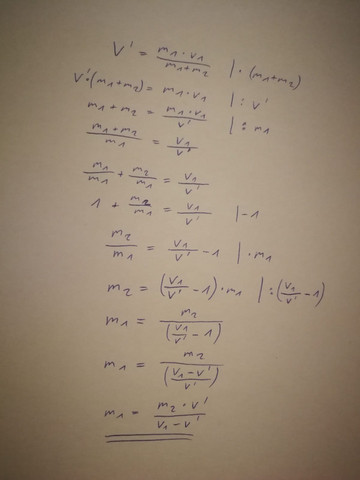 V' = m1·v1/m1+m2 | · (m1+m2)
v'·(m1+m2) = m1·v1 | : v'
m1+m2 = m1·v1/v' | : m1
m1+m2/m1 = v1/v'
m1/m1 + m2/m1 = v1/v'
1 + m2/m1 = v1/v' | -1
m2/m1 = v1/v' - 1 | · m1
m2 = (v1/v' - 1) · m1 | : (v1/v' - 1)
m1 = m2/(v1/v' - 1)
m1 = m2/(v1-v'/v')
m1 = m2·v'/v1-v'